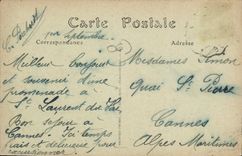 Carte Postale
Correspondance
Adresse
Meilleur bonjour
et souvenir d'une
promenade à
St Laurent du Var
Bon séjour à
Cannes. Ici temps
frais et délicieux pour
Mesdames Simon
Quai St Pierre
Cannes
Alpes Maritimes